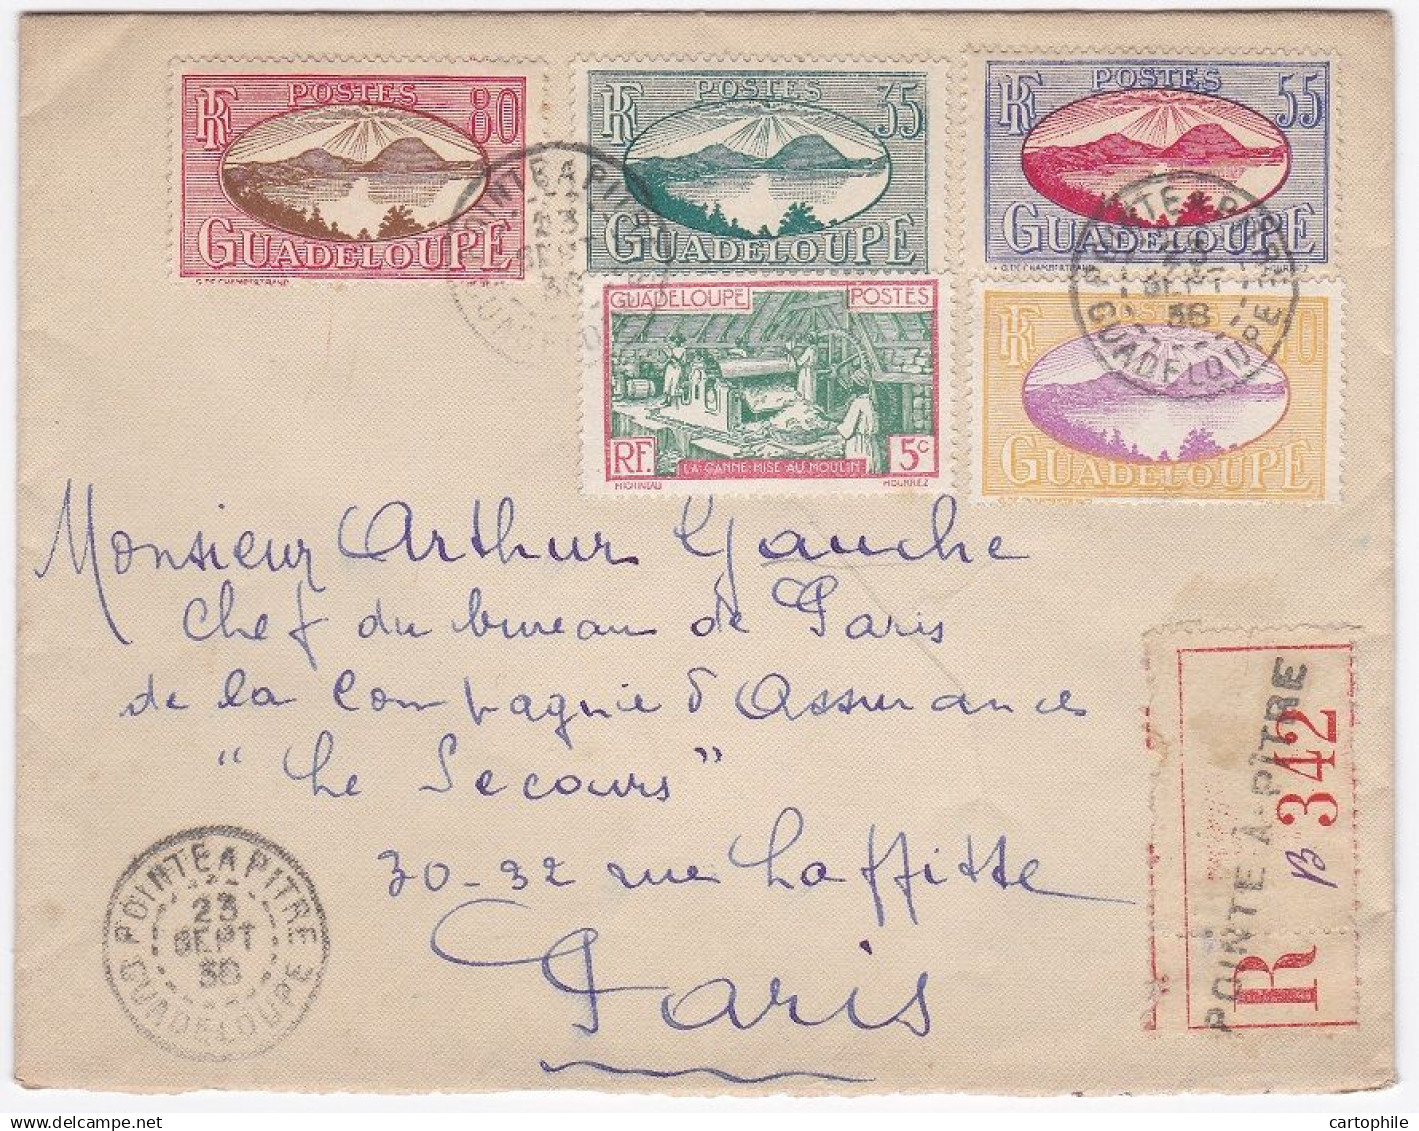 POSTES
RF 80
GUADELOUPE
G. DE CHAMBERTRAND
POSTES
RF 35
GUADELOUPE
POSTES
RF 55
GUADELOUPE
G. DE CHAMBERTRAND HOURRIEZ
POINTE A PITRE
23
SEPT
38
GUADELOUPE
GUADELOUPE POSTES
RF 5c
LA CANNE MISE AU MOULIN
HOURRIEZ
POSTES
RF
GUADELOUPE
POINTE A PITRE
23
SEPT
38
GUADELOUPE
Monsieur Arthur
Chef du bureau de Paris
de la Compagnie d'Assurances
"Le Secours"
30-32 rue Laffitte
Paris
POINTE A PITRE
23
SEPT
GUADELOUPE
R B 342
POINTE À-PITRE
cartophile